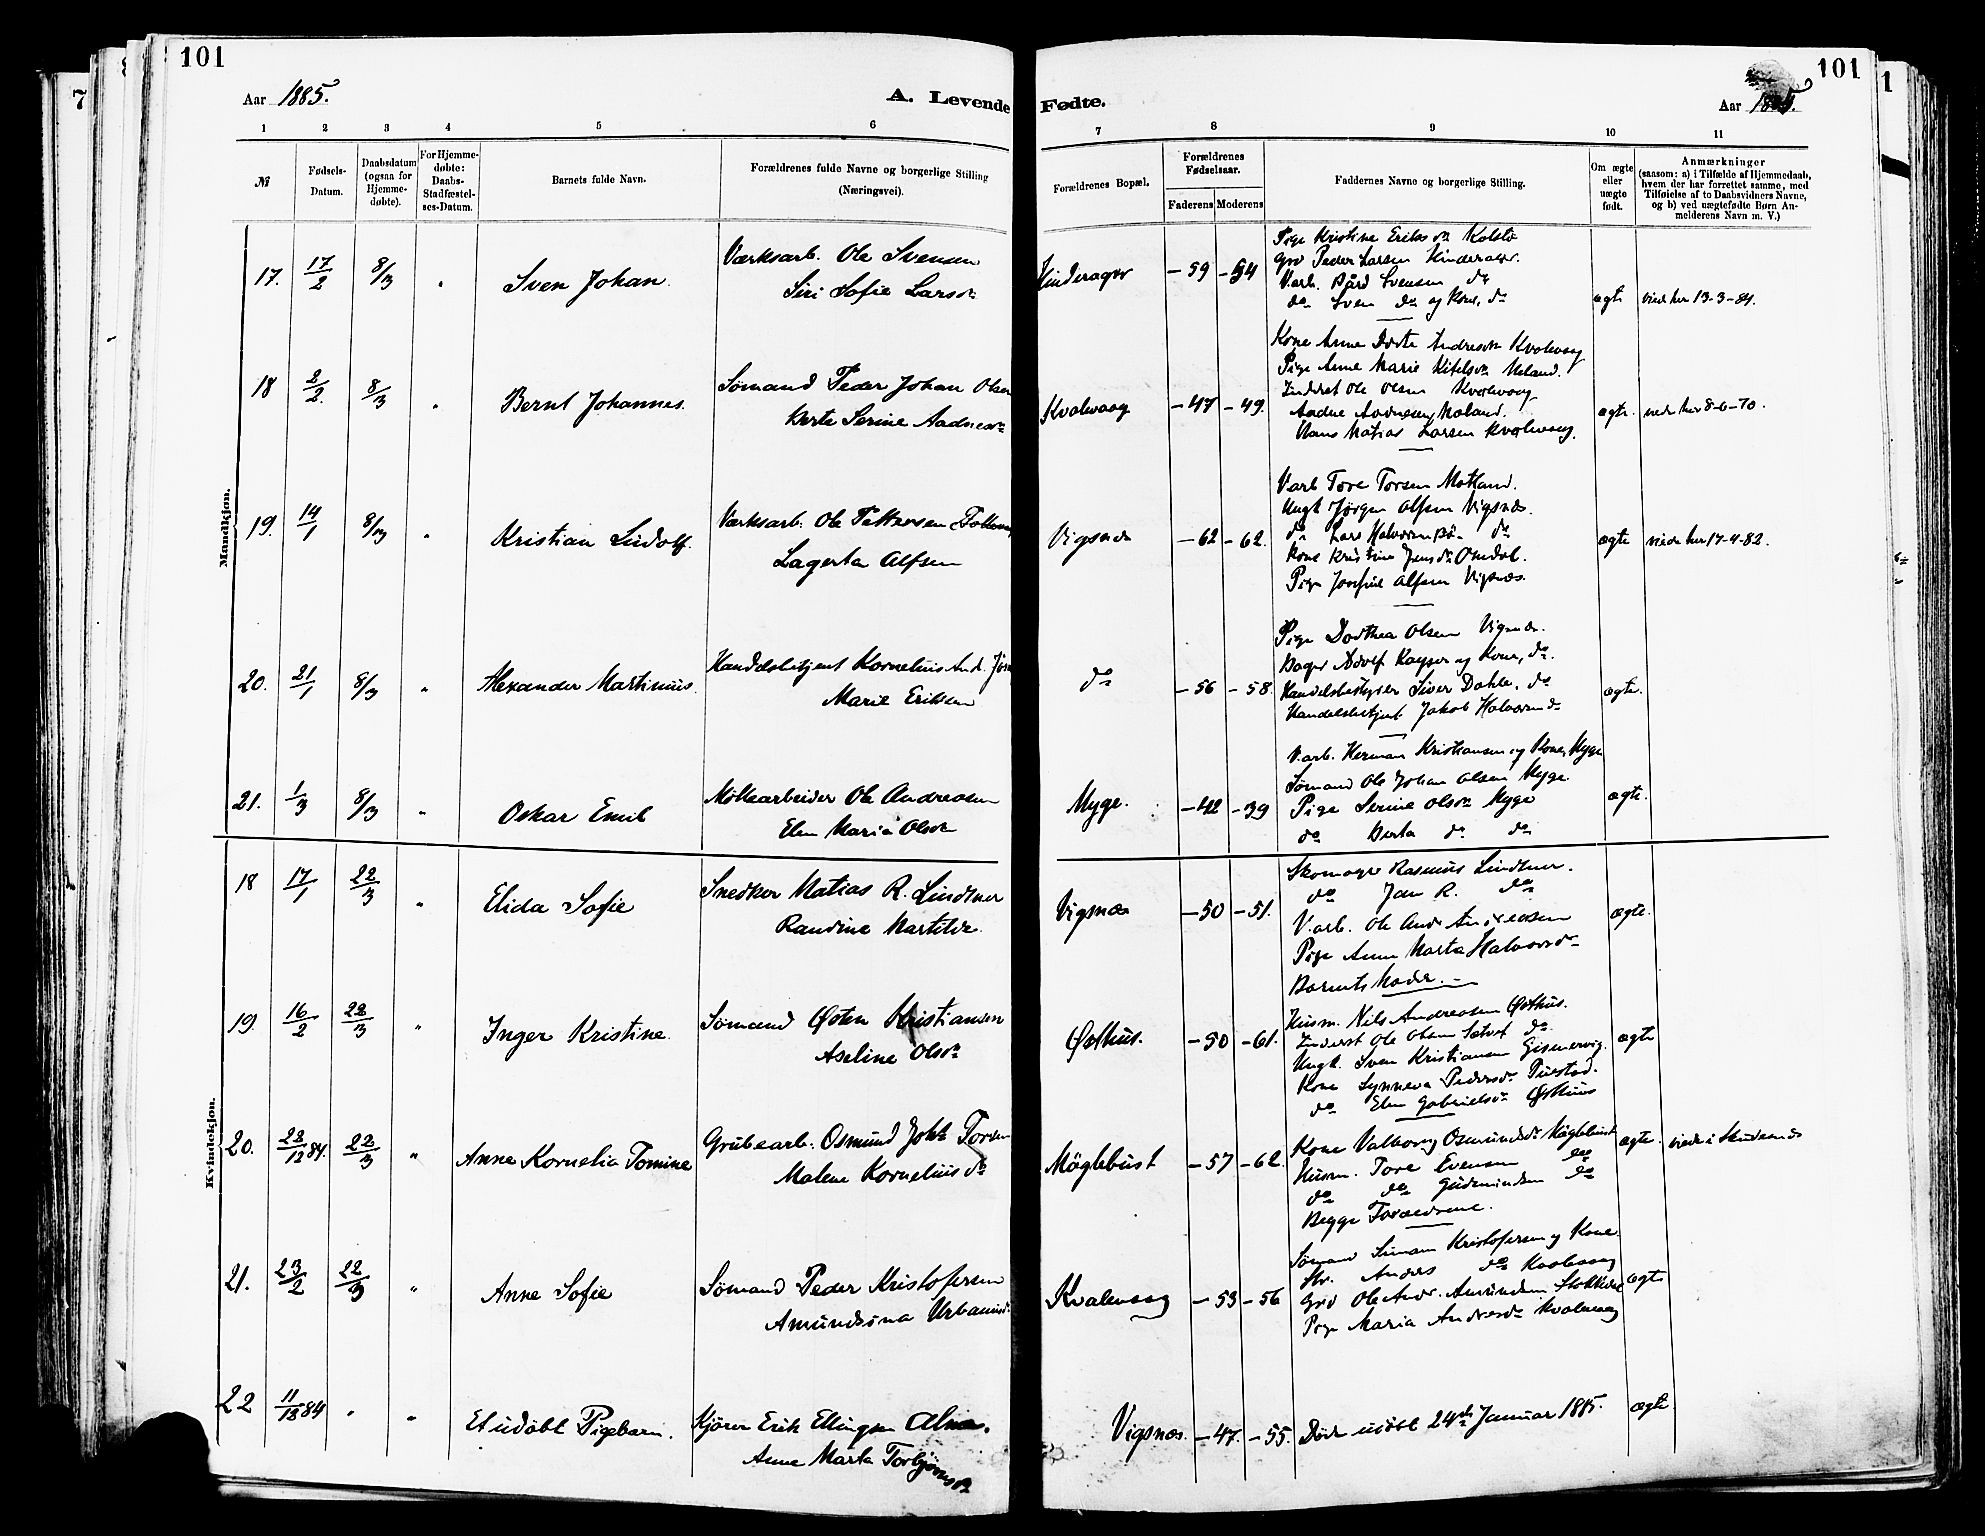 101
Aar 1885.
A. Levende
1 2 3 4 5 6
№
Fødsels-
Datum.
Daabsdatum
(ogsaa for
Hjemme-
døbte).
For Hjemme-
døbte:
Daabs-
Stadfæstel-
ses-Datum.
Barnets fulde Navn.
Forældrenes fulde Navne og borgerlige Stilling
(Næringsvei).
Mandkjøn.
17. 17/2 8/3 " Sven Johan.
Værksarb. Ole Svensen
Siri Sofie Larsdr
18 2/2. 8/3 " Bernt Johannes.
Sømand Peder Johan Olsen
Berte Serine Aadnesdr
19. 14/1 8/3 " Kristian Ludolf.
Værksarb. Ole Pettersen
Lagerta Alfsen
20. 21/1 8/3 " Alexander Martinius.
Handelsbetjent Kornelius And.
Marie Eriksen
21. 1/3 8/3 " Oskar Emil
Møllearbeider Ole Andreasen
Elen Maria Olsdr
Kvindekjøn.
18 17/1 22/3 " Elida Sofie
Snedker Matias R. Lindtner
Randine Martilde.
19. 16/2 22/3 " Inger Kristine.
Sømand Østen Kristiansen
Aseline Olsdr
20. 22/12 84. 22/3 " Anne Kornelia Tomine
Grubearb. Osmund Johs Torsen
Malene Kornelius dr
21. 23/2 22/3 " Anne Sofie
Sømand Peder Kristofersen
Amundsina Urbanusd.
22 11/12 84 " " Et udøbt Pigebarn.
Kjører Erik Ellingsen
Anne Marta Torbjørnsdr
101
Fødte.
Aar 1885.
7 8 9 10 11
Forældrenes Bopæl.
Forældrenes
Fødselsaar.
Faderens Moderens
Faddernes Navne og borgerlige Stilling.
Om ægte
eller
uægte
født.
Anmærkninger
(saasom: a) i Tilfælde af Hjemmedaab,
hvem der har forrettet samme, med
Tilføielse af to Daabsvidners Navne,
og b) ved uægtefødte Børn An-
melderens Navn m. V.)
Hinderager – 59 – 54
Pige Kristine Eriksdr Kolstø
Grd Peder Larsen Hinderager.
Varb. Bård Svensen do
do Sven do og Kone, do
ægte viede her 13-3-84.
Kvalevaag – 47 – 49.
Kone Anne Dorte Andreasdr Kvalevaag
Pige Anne Marie Kitelsdr
Inderst Ole Olsen Kvalevaag
Aadne Aadnesen
Hans Matias Larsen Kvalevaag.
ægte. viede her 8-6-70.
Vigsnæs – 62 – 62.
Varb Tore Torsen Mokland.
Ungk Jørgen Alfsen Vigsnæs.
do Lars Halvorsen Bø. do
Kone Kristine Jensdr
Pige Josefine Alfsen Vigsnæs.
ægte viede her 17-4-82.
do – 56 – 58.
Pige Dorthea Olsen Vigsnæs.
Bager Adolf Kayser og Kone, do.
Handelsbestyrer Siver Dahle, do
Handelsbetjent Jakob Halvorsen do
ægte.
Myge. – 42 – 39
Varb. Herman Kristiansen og Kone, Myge
Sømand Ole Johan Olsen Myge.
Pige Serine Olsdr Myge
do Berta do do
ægte.
Vigsnæs – 50 – 51.
Skomager Rasmus Lindtner.
do Jan R. do
Varb. Ole And. Andreasen
Pige Anne Marta Halvorsdr
Barnets Moder.
ægte.
Østhus. – 50 – 61.
Husm. Nils Andreasen Østhus.
Inderst Ole Olsen do.
Ungk. Sven Kristiansen Gismervig.
Kone Synneva Pedersdr
do Elen Gabrielsdr Østhuus
ægte
Møglebust – 57 – 62.
Kone Valborg Osmundsdr Møglebust
Husm. Tore Evensen do
do do Gudmundsen do
Begge Forældrene.
ægte. viede i Skudesnæs
Kvalevaag – 53 – 56
Sømand Simon Kristofersen og Kone
Str. Anders do Kvalevaag
Grd Ole Andr. Amundsen
Pige Maria Andersdr Kvalevaag
ægte
Vigsnæs. – 47. – 55.
Døde udøbt 24de Januar 1885.
ægte